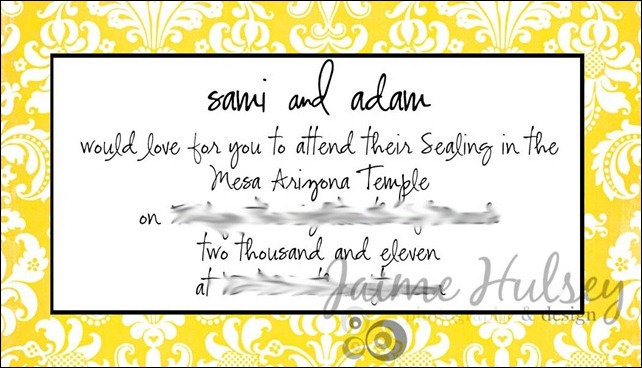 sami and adam
would love for you to attend their Sealing in the
Mesa Arizona Temple
on
two thousand and eleven
at
Jaime Hulsey
& design